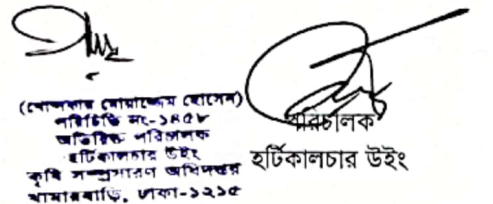 (খোন্দকার মোয়াজ্জেম হোসেন)
পরিচিতি নং-১৪৫৮
অতিরিক্ত পরিচালক
হর্টিকালচার উইং
কৃষি সম্প্রসারণ অধিদপ্তর
খামারবাড়ি, ঢাকা-১২১৫
পরিচালক
হর্টিকালচার উইং